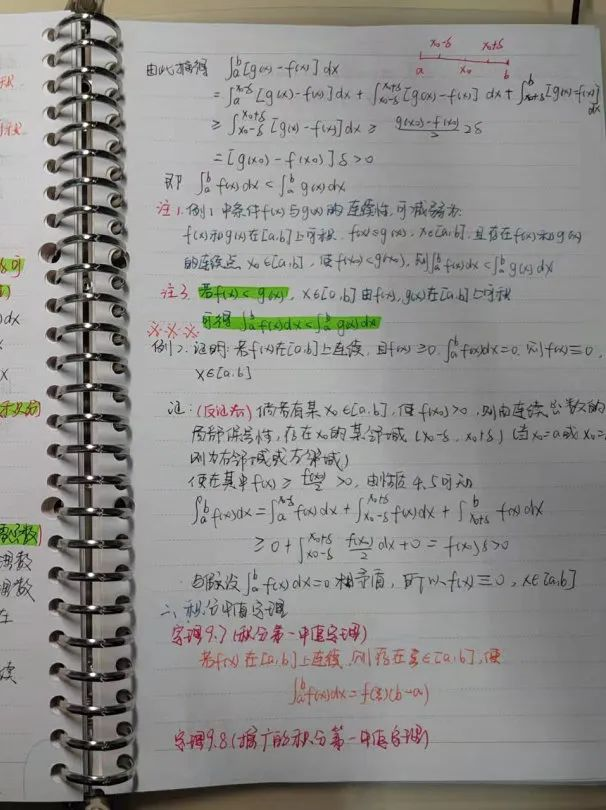 x₀-δ x₀+δ
a x₀ b
由此推得 ∫ₐᵇ[g(x)-f(x)]dx
= ∫ₐ^{x₀-δ}[g(x)-f(x)]dx + ∫_{x₀-δ}^{x₀+δ}[g(x)-f(x)]dx + ∫_{x₀+δ}^b[g(x)-f(x)]dx
≥ ∫_{x₀-δ}^{x₀+δ}[g(x)-f(x)]dx ≥ (g(x₀)-f(x₀))/2 2δ
= [g(x₀)-f(x₀)]δ>0
即 ∫ₐᵇf(x)dx < ∫ₐᵇg(x)dx
注1. 例1中条件f(x)与g(x)的连续性,可减弱为:
f(x)和g(x)在[a,b]上可积, f(x)≤g(x), x∈[a,b], 且存在f(x)和g(x)
的连续点 x₀∈[a,b], 使f(x₀)<g(x₀), 则∫ₐᵇf(x)dx<∫ₐᵇg(x)dx
若f(x)<g(x), x∈[a,b] 由f(x), g(x)在[a,b]上可积
可得 ∫ₐᵇf(x)dx<∫ₐᵇg(x)dx
※·※·※
例2. 证明: 若f(x)在[a,b]上连续, 且f(x)≥0, ∫ₐᵇf(x)dx=0, 则f(x)≡0,
x∈[a,b]
证: (反证法) 倘若有某x₀∈[a,b], 使f(x₀)>0, 则由连续函数的
局部保号性, 存在x₀的某邻域 (x₀-δ, x₀+δ) (当x₀=a或x₀=
则为右邻域或左邻域)
使在其中f(x)≥ f(x₀)/2 >0, 由性质4.5可知
∫ₐᵇf(x)dx = ∫ₐ^{x₀-δ}f(x)dx + ∫_{x₀-δ}^{x₀+δ}f(x)dx + ∫_{x₀+δ}^b f(x)dx
≥ 0+∫_{x₀-δ}^{x₀+δ} f(x₀)/2 dx+0 = f(x₀)δ>0
与假设∫ₐᵇf(x)dx=0相矛盾, 所以f(x)≡0, x∈[a,b]
二、积分中值定理
定理9.7(积分第一中值定理)
若f(x)在[a,b]上连续, 则存在ξ∈[a,b], 使
∫ₐᵇf(x)dx=f(ξ)(b-a)
定理9.8(推广的积分第一中值定理)